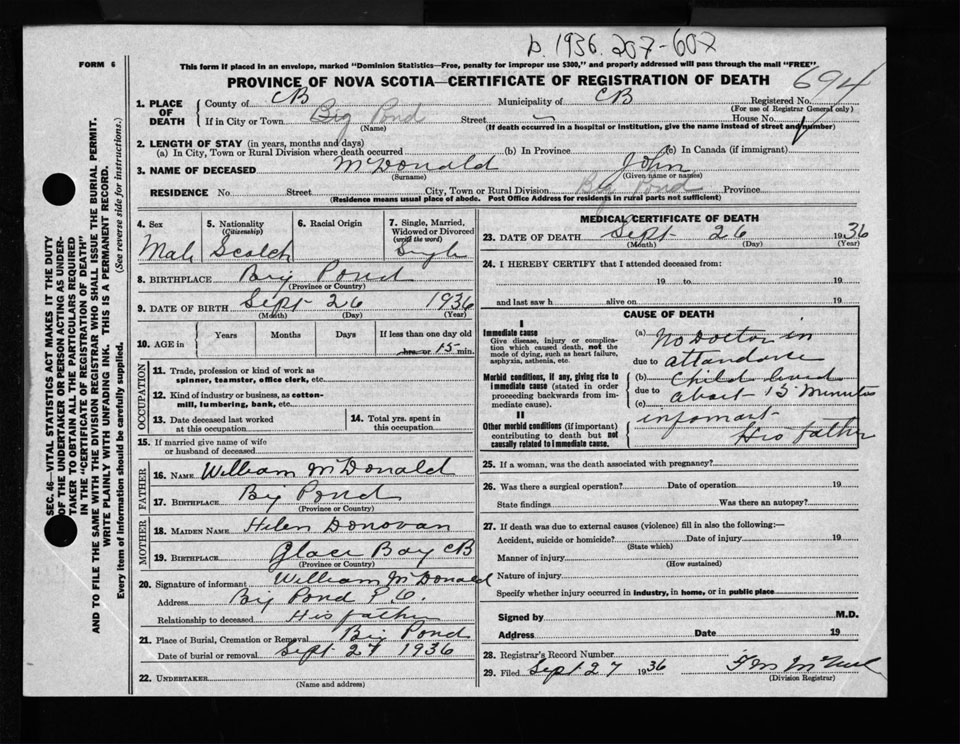 D. 1936. 207-607
FORM 6
This form if placed in an envelope, marked "Dominion Statistics—Free, penalty for improper use $300," and properly addressed will pass through the mail "FREE".
PROVINCE OF NOVA SCOTIA—CERTIFICATE OF REGISTRATION OF DEATH
694
SEC. 46—VITAL STATISTICS ACT MAKES IT THE DUTY
OF THE UNDERTAKER OR PERSON ACTING AS UNDER-
TAKER TO OBTAIN ALL THE PARTICULARS REQUIRED
IN THE "CERTIFICATE OF REGISTRATION OF DEATH"
AND TO FILE THE SAME WITH THE DIVISION REGISTRAR WHO SHALL ISSUE THE BURIAL PERMIT.
WRITE PLAINLY WITH UNFADING INK. THIS IS A PERMANENT RECORD.
Every item of information should be carefully supplied. (See reverse side for instructions.)
1. PLACE OF DEATH
County of CB Municipality of CB Registered No.
(For use of Registrar General only)
If in City or Town Big Pond Street House No.
(Name) (If death occurred in a hospital or institution, give the name instead of street and number)
2. LENGTH OF STAY (in years, months and days)
(a) In City, Town or Rural Division where death occurred (b) In Province (c) In Canada (if immigrant)
3. NAME OF DECEASED McDonald John
(Surname) (Given name or names)
RESIDENCE No. Street City, Town or Rural Division Big Pond Province
(Residence means usual place of abode. Post Office Address for residents in rural parts not sufficient)
4. Sex
Male
5. Nationality
(Citizenship)
Scotch
6. Racial Origin
7. Single, Married,
Widowed or Divorced
(write the word)
Single
8. BIRTHPLACE Big Pond
(Province or Country)
9. DATE OF BIRTH Sept 26 1936
(Month) (Day) (Year)
10. AGE in
Years Months Days If less than one day old
hrs. or 15 min.
OCCUPATION
11. Trade, profession or kind of work as
spinner, teamster, office clerk, etc.
12. Kind of industry or business, as cotton-
mill, lumbering, bank, etc.
13. Date deceased last worked
at this occupation
14. Total yrs. spent in
this occupation
15. If married give name of wife
or husband of deceased
FATHER
16. NAME William McDonald
17. BIRTHPLACE Big Pond
(Province or Country)
MOTHER
18. MAIDEN NAME Helen Donovan
19. BIRTHPLACE Glace Bay CB
(Province or Country)
20. Signature of informant William McDonald
Address Big Pond P.O.
Relationship to deceased His father
21. Place of Burial, Cremation or Removal Big Pond
Date of burial or removal Sept 27 1936
22. UNDERTAKER
(Name and address)
MEDICAL CERTIFICATE OF DEATH
23. DATE OF DEATH Sept 26 1936
(Month) (Day) (Year)
24. I HEREBY CERTIFY that I attended deceased from:
19 to 19
and last saw h alive on 19
CAUSE OF DEATH
I
Immediate cause
Give disease, injury or complica-
tion which caused death, not the
mode of dying, such as heart failure,
asphyxia, asthenia, etc.
Morbid conditions, if any, giving rise to
immediate cause (stated in order
proceeding backwards from im-
mediate cause).
II
Other morbid conditions (if important)
contributing to death but not
causally related to immediate cause.
(a) No Doctor in
due to attendance
(b) Child lived
due to about 15 minutes
(c)
informant
His father
25. If a woman, was the death associated with pregnancy?
26. Was there a surgical operation? Date of operation 19
State findings Was there an autopsy?
27. If death was due to external causes (violence) fill in also the following:—
Accident, suicide or homicide? Date of injury 19
(State which)
Manner of injury
(How sustained)
Nature of injury
Specify whether injury occurred in industry, in home, or in public place
Signed by M.D.
Address Date 19
28. Registrar's Record Number
29. Filed Sept 27 1936
(Division Registrar)